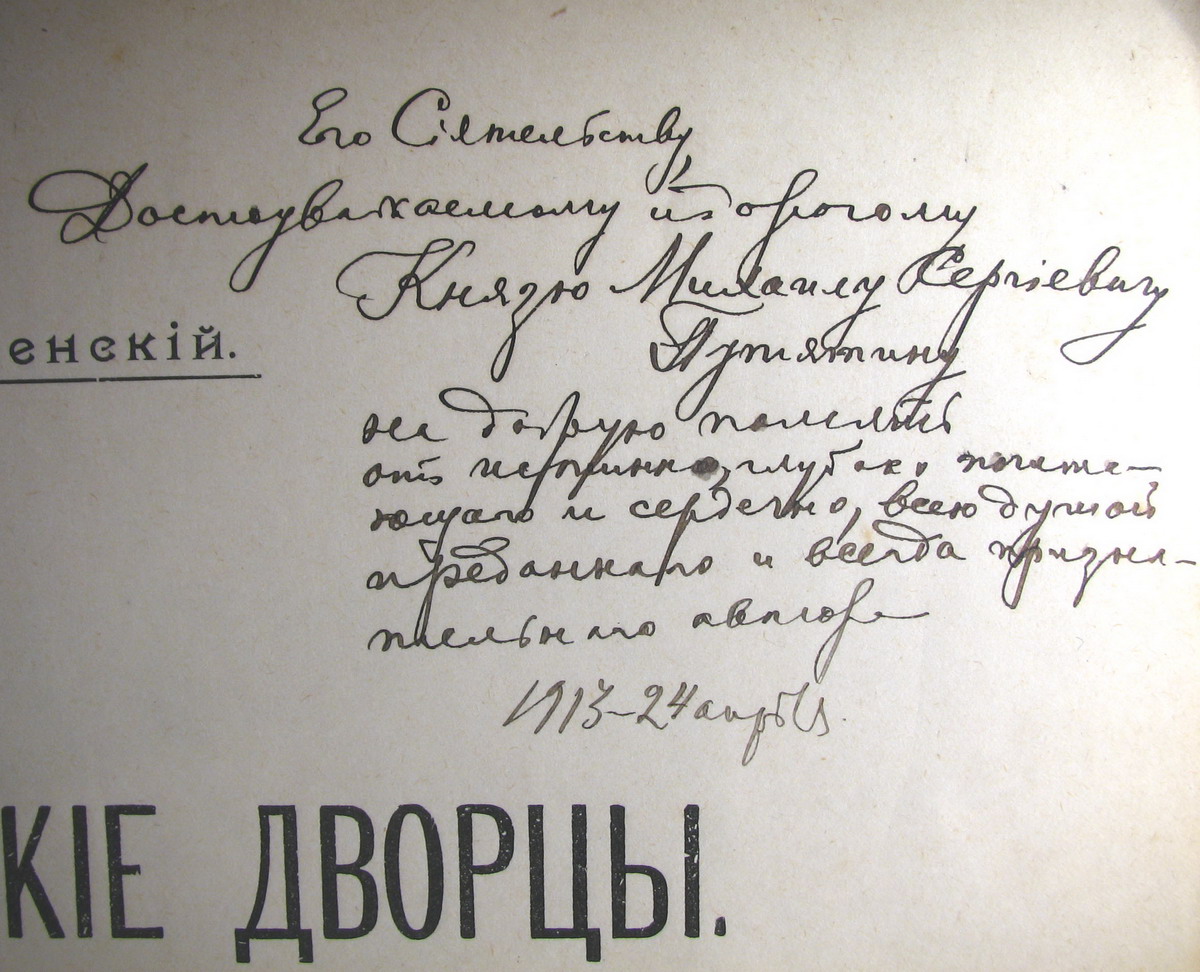 Его Сіятельству,
Достоуважаемому и дорогому
Князю Михаилу Сергіевичу
Путятину
на добрую память
отъ истинно, глубоко почита-
ющаго и сердечно, всею душой
преданнаго и всегда призна-
тельнаго автора
1913–24 апрѣля.
енскій.
КІЕ ДВОРЦЫ.